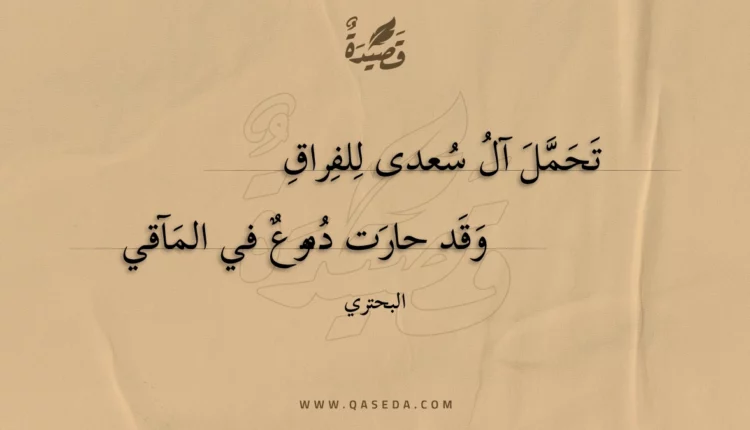 قَصِيْدَةٌ
تَحَمَّلَ آلُ سُعدى لِلفِراقِ
وَقَد حارَت دُموعٌ في المَآقي
البحتري
WWW.QASEDA.COM